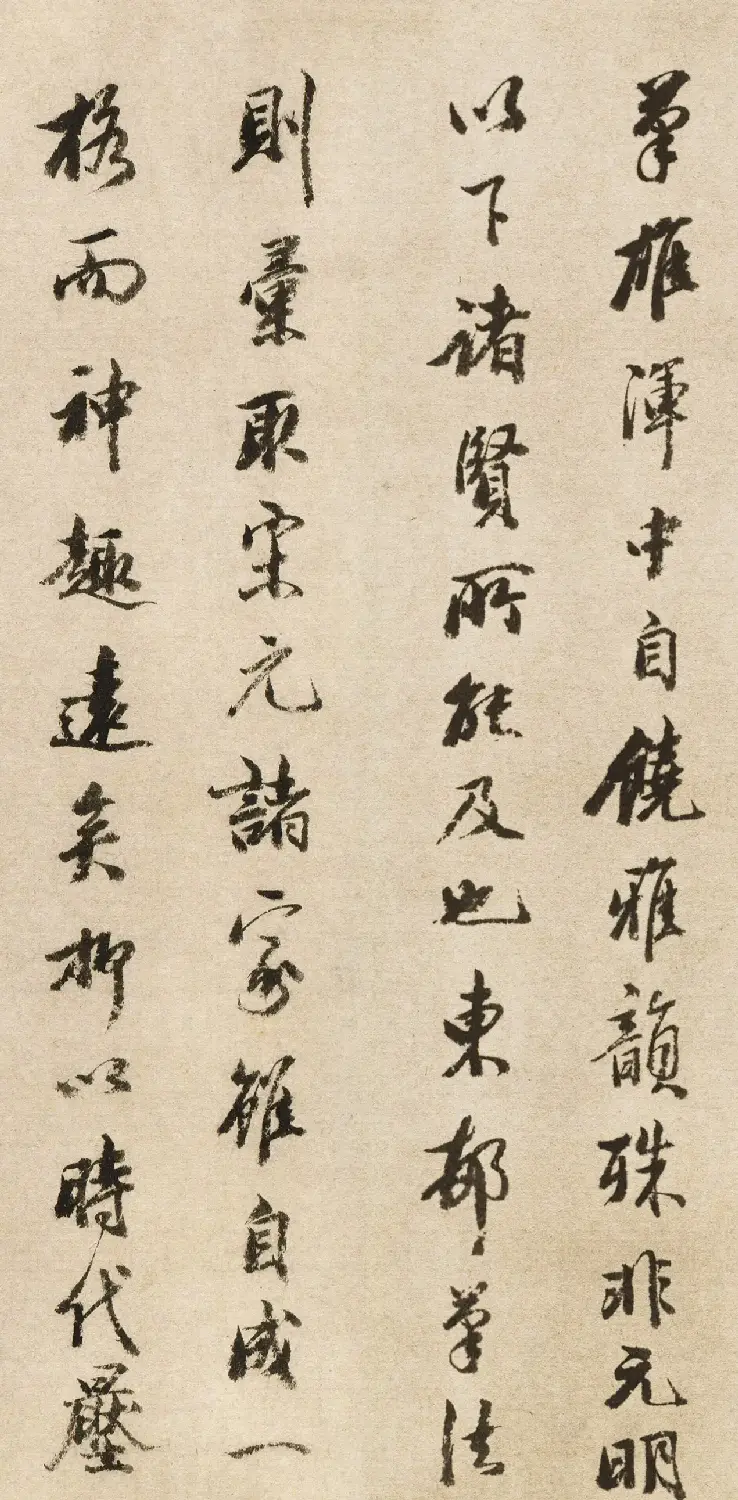 筆雄渾中自饒雅韻殊非元明
以下諸賢所能及也東邨筆法
則彙取宋元諸家雖自成一
格而神趣遠矣抑以時代壓